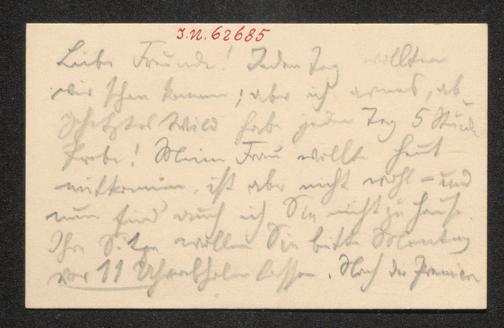 I.N. 62685
Liebe Freunde! Jeden Tag wollten
wir schon kommen; aber ich armes, ab
gehetztes Wild habe jeden Tag 5 Stund
Probe! Meine Frau wollte heut
mitkommen, ist aber nicht wohl – und
nun find auch ich Sie nicht zu Hause.
Ihre Sitze wollen Sie bitte Montag
vor 11 Uhr abholen lassen. Nach der Premiere